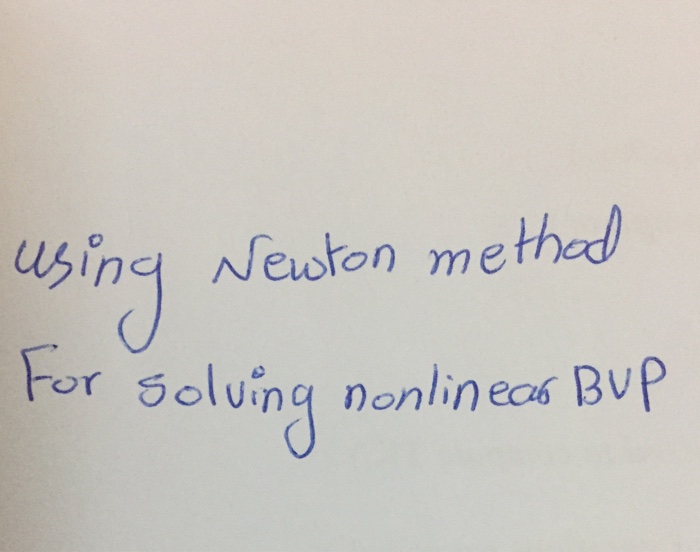 using Newton method
For solving nonlinear BVP